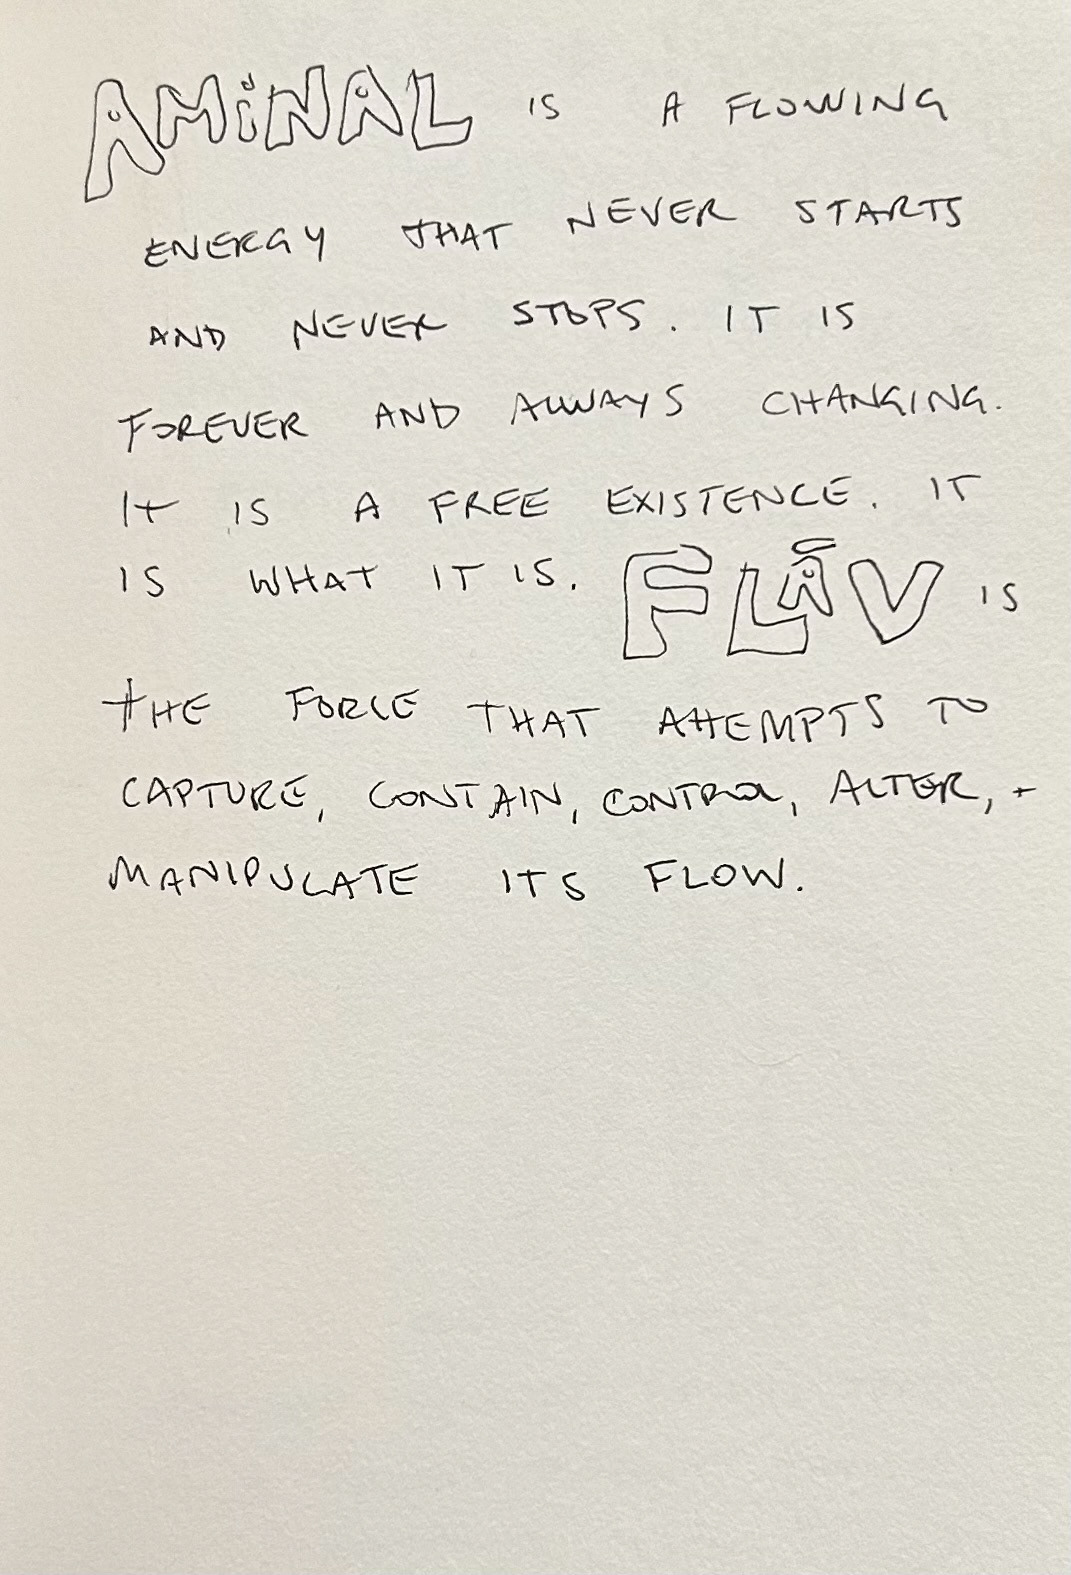 AMiNAL IS A FLOWING
ENERGY THAT NEVER STARTS
AND NEVER STOPS. IT IS
FOREVER AND ALWAYS CHANGING.
It IS A FREE EXISTENCE. IT
IS WHAT IT IS. FLĀV IS
tHE FORCE THAT ATTEMPTS TO
CAPTURE, CONTAIN, CONTROL, ALTER, +
MANIPULATE ITS FLOW.